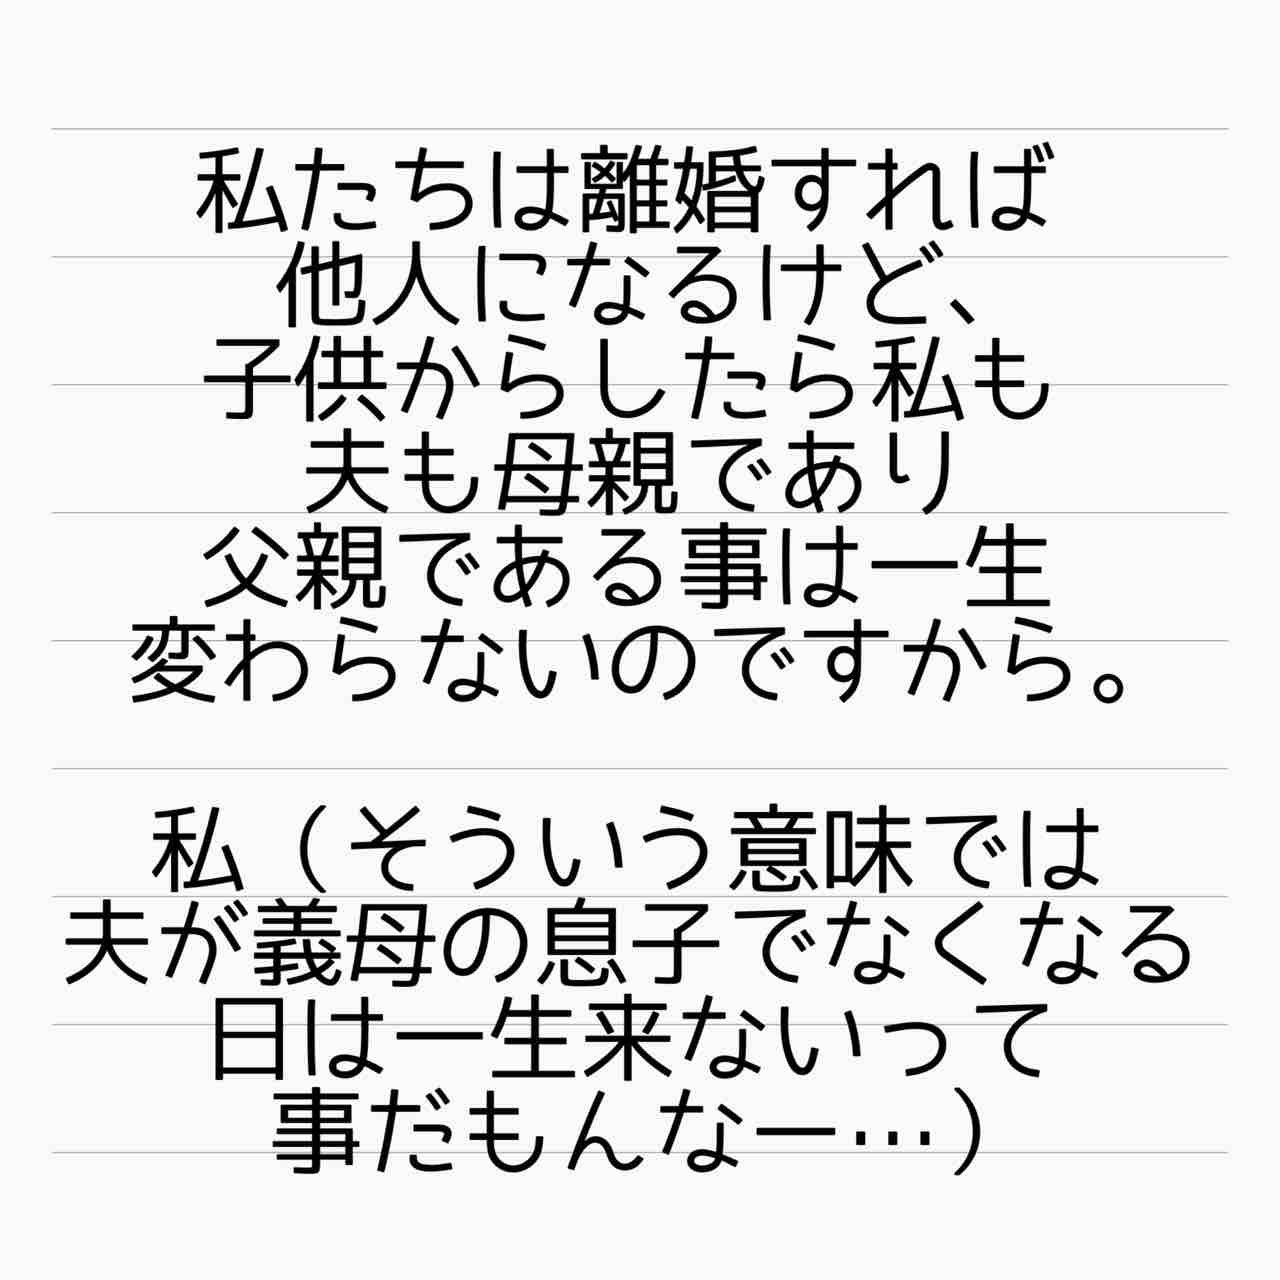 私たちは離婚すれば
他人になるけど、
子供からしたら私も
夫も母親であり
父親である事は一生
変わらないのですから。
私（そういう意味では
夫が義母の息子でなくなる
日は一生来ないって
事だもんなー…）